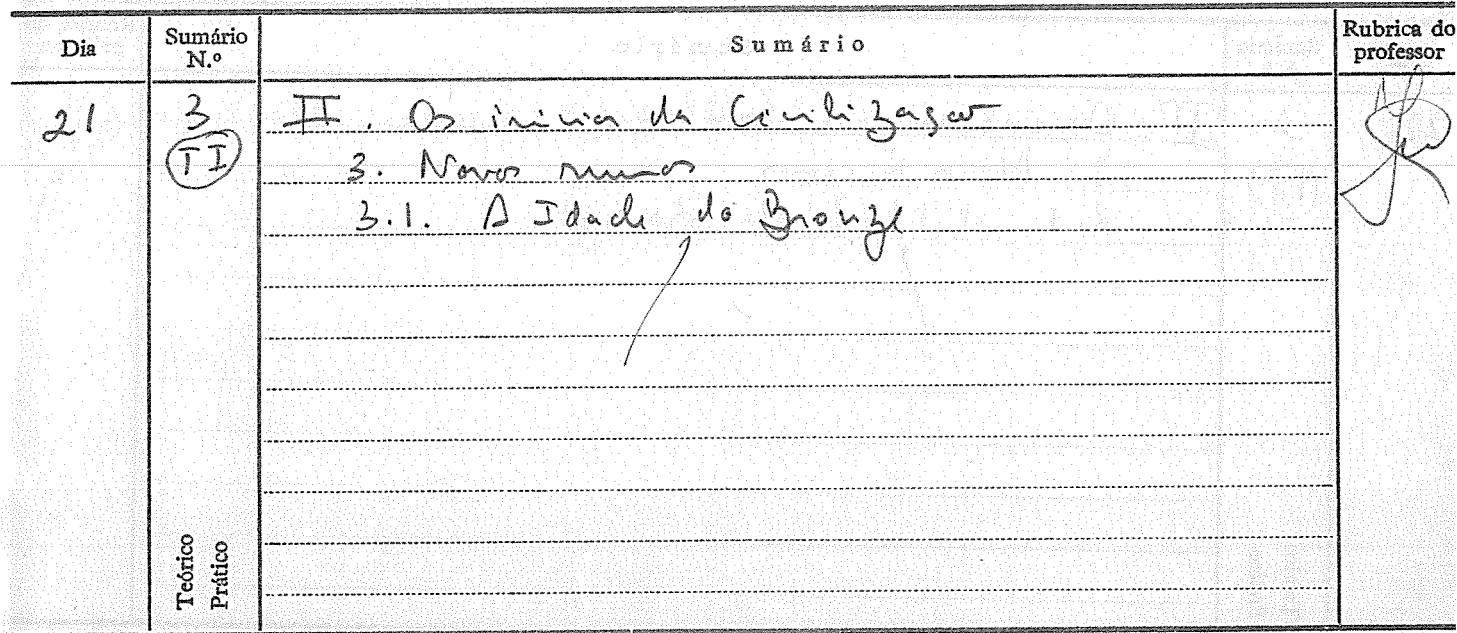 Dia Sumário N.º Sumário Rubrica do professor
21 3 II. Os inícios da Civilização
TI 3. Novos rumos
3.1. A Idade do Bronze
Teórico
Prático